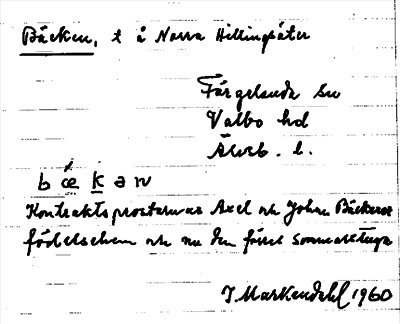 Bäcken, t å Norra Hillingsäter
Färgelanda sn
Valbo hd
Älvsb. l.
b ǽ k ə n
Kontraktsprostarnas Axel och Johan Bäckerot
födelsehem och nu den förres sommarstuga
J Markendahl 1960